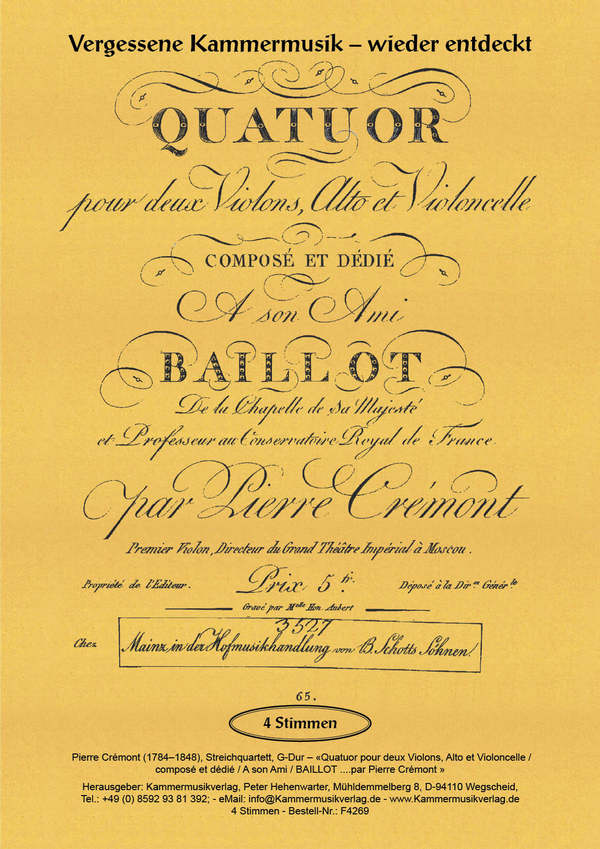 Vergessene Kammermusik – wieder entdeckt
QUATUOR
pour deux Violons, Alto et Violoncelle
COMPOSÉ ET DÉDIÉ
A son Ami
BAILLOT
De la Chapelle de Sa Majesté
et Professeur au Conservatoire Royal de France
par Pierre Crémont
Premier Violon, Directeur du Grand Théâtre Impérial à Moscou.
Propriété de l'Editeur. Prix 5 fr. Déposé à la Dir.on Génér.le
Gravé par Melle Hon. Aubert
3527
Chez Mainz, in der Hofmusikhandlung von B. Schotts Söhnen.
65.
4 Stimmen
Pierre Crémont (1784–1848), Streichquartett, G-Dur – «Quatuor pour deux Violons, Alto et Violoncelle /
composé et dédié / A son Ami / BAILLOT ....par Pierre Crémont »
Herausgeber: Kammermusikverlag, Peter Hehenwarter, Mühldemmelberg 8, D-94110 Wegscheid,
Tel.: +49 (0) 8592 93 81 392; - eMail: info@Kammermusikverlag.de - www.Kammermusikverlag.de
4 Stimmen - Bestell-Nr.: F4269